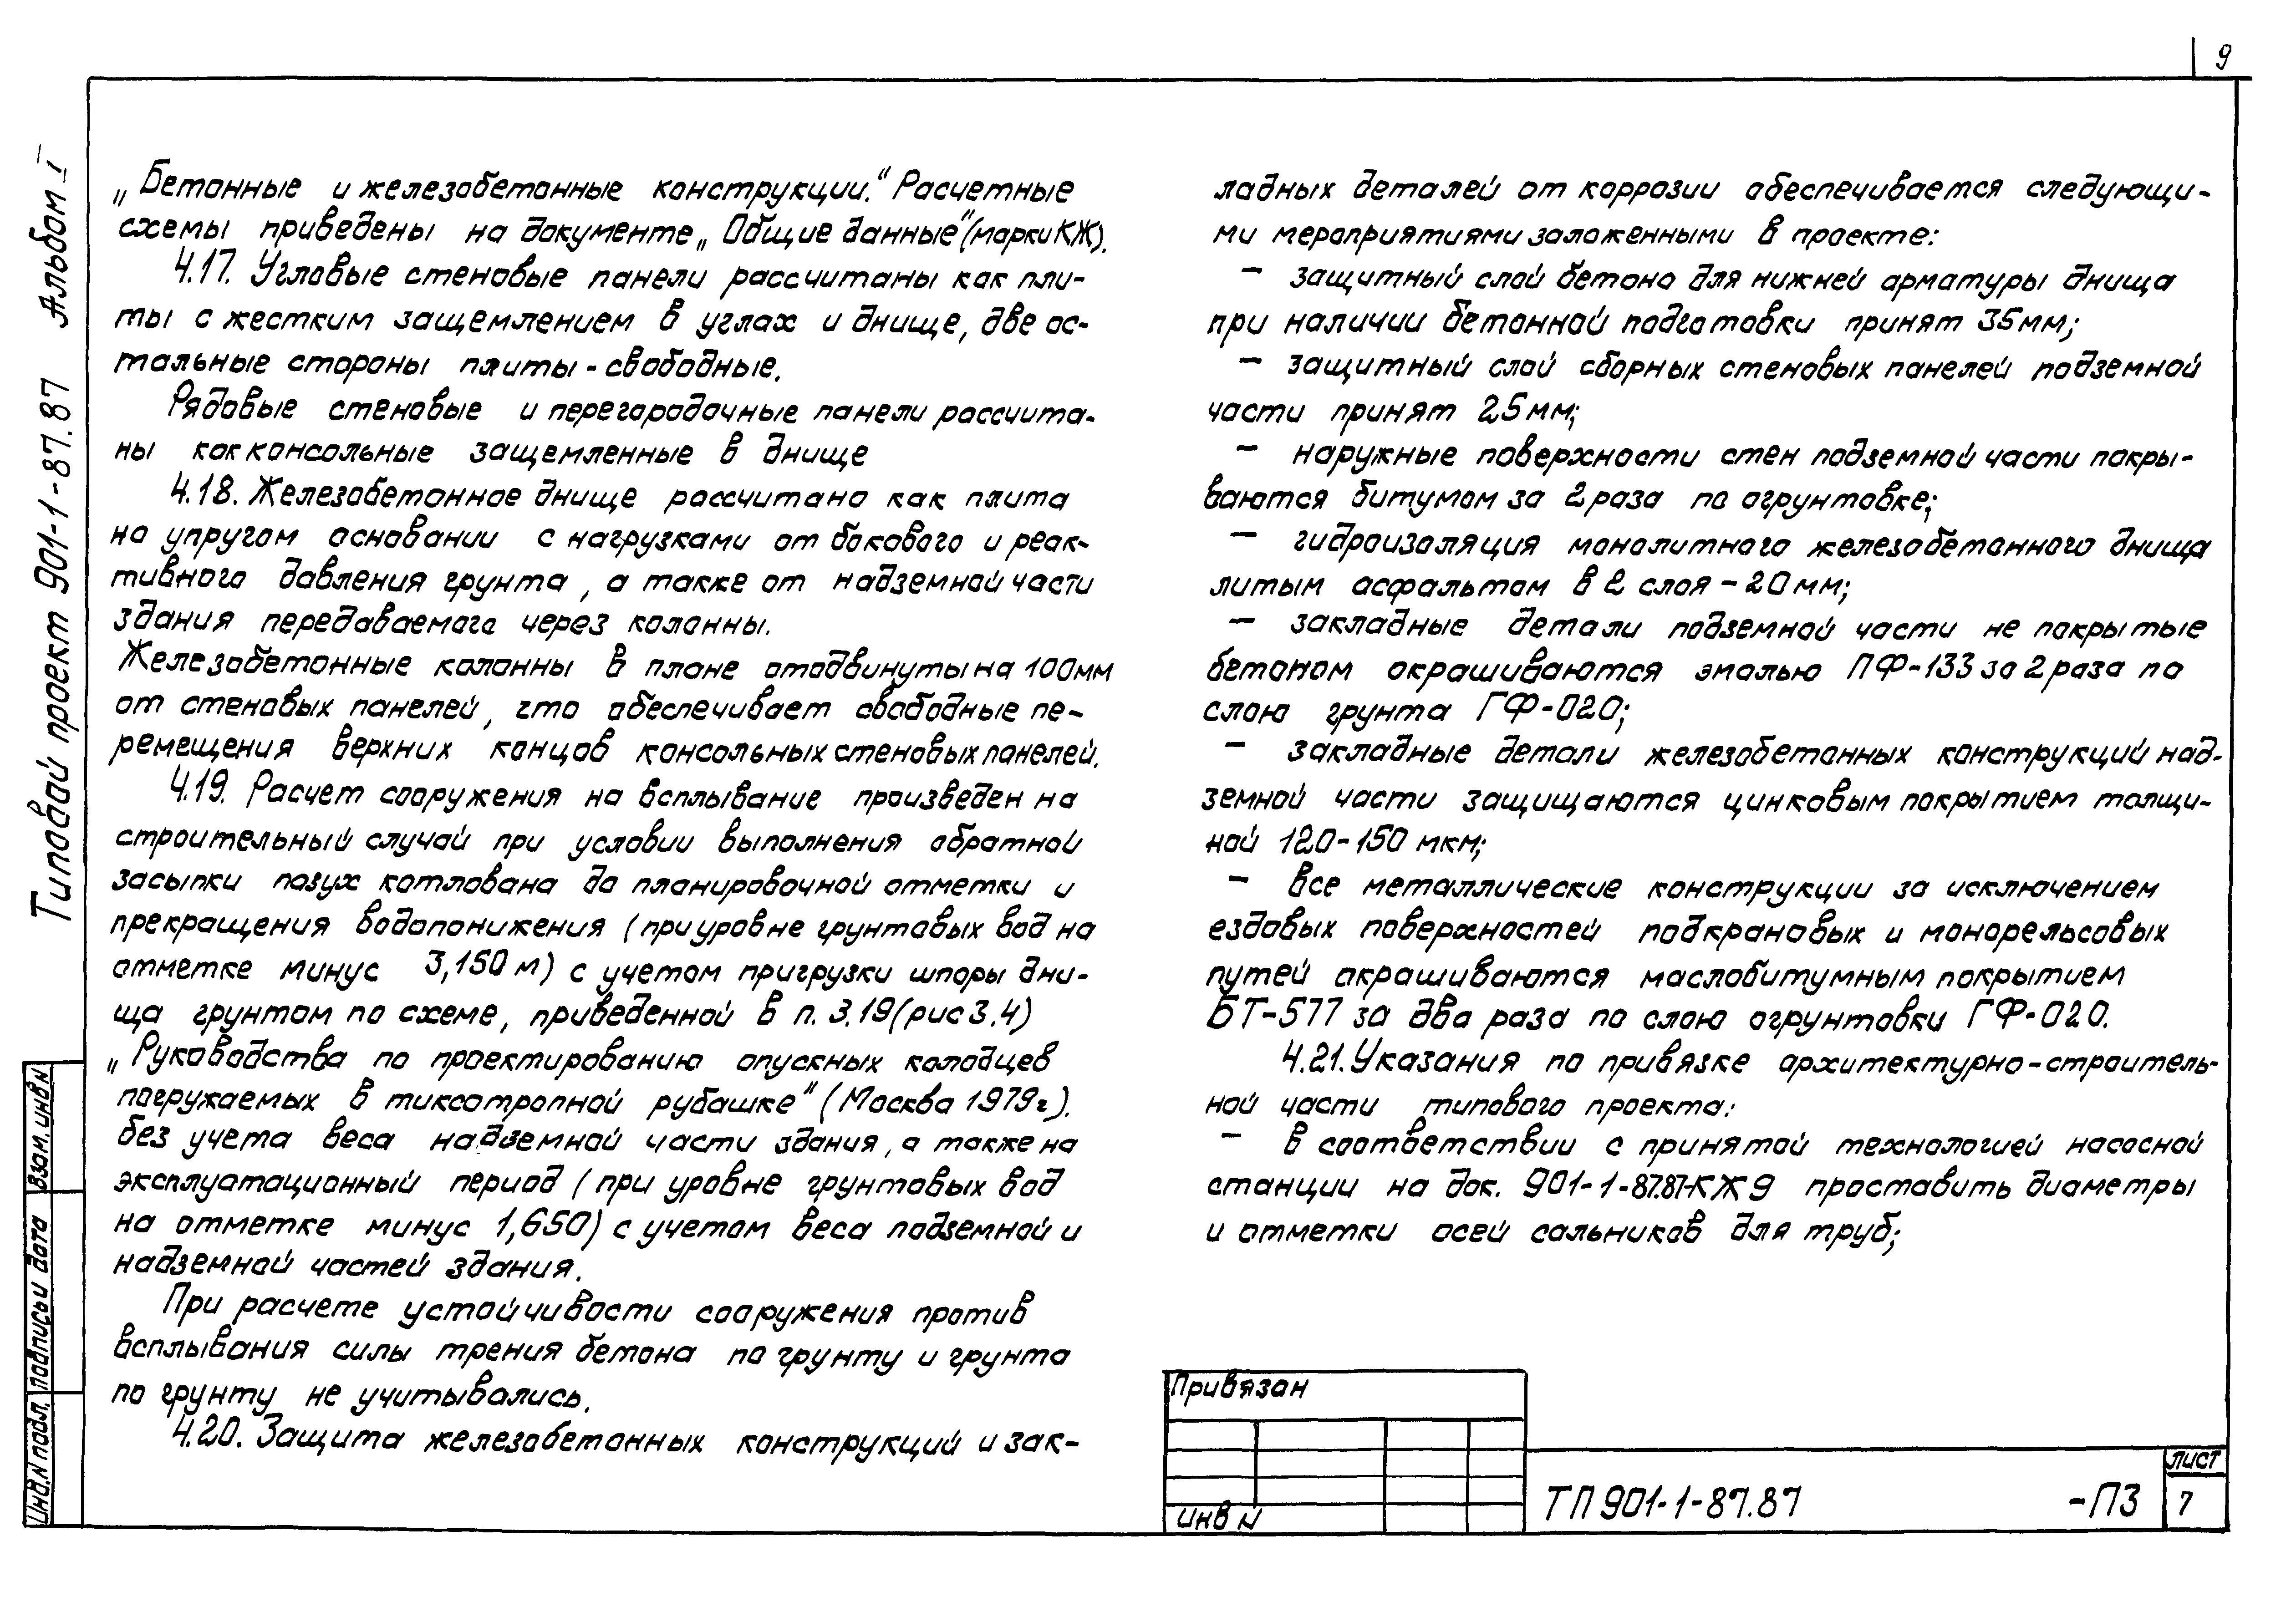 9
Типовой проект 901-1-87.87 Альбом I
„Бетонные и железобетонные конструкции.“ Расчетные
схемы приведены на документе „Общие данные“ (марки КЖ).
4.17. Угловые стеновые панели рассчитаны как пли-
ты с жестким защемлением в углах и днище, две ос-
тальные стороны плиты - свободные.
Рядовые стеновые и перегородочные панели рассчита-
ны как консольные защемленные в днище
4.18. Железобетонное днище рассчитано как плита
на упругом основании с нагрузками от бокового и реак-
тивного давления грунта, а также от надземной части
здания передаваемого через колонны.
Железобетонные колонны в плане отодвинуты на 100мм
от стеновых панелей, что обеспечивает свободные пе-
ремещения верхних концов консольных стеновых панелей.
4.19. Расчет сооружения на всплывание произведен на
строительный случай при условии выполнения обратной
засыпки пазух котлована до планировочной отметки и
прекращения водопонижения (при уровне грунтовых вод на
отметке минус 3,150 м) с учетом пригрузки шпоры дни-
ща грунтом по схеме, приведенной в п. 3.19 (рис 3.4)
„Руководства по проектированию опускных колодцев
погружаемых в тиксотропной рубашке“ (Москва 1979г).
без учета веса надземной части здания, а также на
эксплуатационный период (при уровне грунтовых вод
на отметке минус 1,650) с учетом веса подземной и
надземной частей здания.
При расчете устойчивости сооружения против
всплывания силы трения бетона по грунту и грунта
по грунту не учитывались.
4.20. Защита железобетонных конструкций и зак-
ладных деталей от коррозии обеспечивается следующи-
ми мероприятиями заложенными в проекте:
- защитный слой бетона для нижней арматуры днища
при наличии бетонной подготовки принят 35мм;
- защитный слой сборных стеновых панелей подземной
части принят 25мм;
- наружные поверхности стен подземной части покры-
ваются битумом за 2 раза по огрунтовке;
- гидроизоляция монолитного железобетонного днища
литым асфальтом в 2 слоя - 20мм;
- закладные детали подземной части не покрытые
бетоном окрашиваются эмалью ПФ-133 за 2 раза по
слою грунта ГФ-020;
- закладные детали железобетонных конструкций над-
земной части защищаются цинковым покрытием толщи-
ной 120-150 мкм;
- все металлические конструкции за исключением
ездовых поверхностей подкрановых и монорельсовых
путей окрашиваются маслобитумным покрытием
БТ-577 за два раза по слою огрунтовки ГФ-020.
4.21. Указания по привязке архитектурно-строитель-
ной части типового проекта:
- в соответствии с принятой технологией насосной
станции на док. 901-1-87.87-КЖ9 проставить диаметры
и отметки осей сальников для труб;
Взам. инв N
Подпись и дата
Инв. N подл.
Привязан
Инв N
ТП 901-1-87.87 -ПЗ
Лист
7